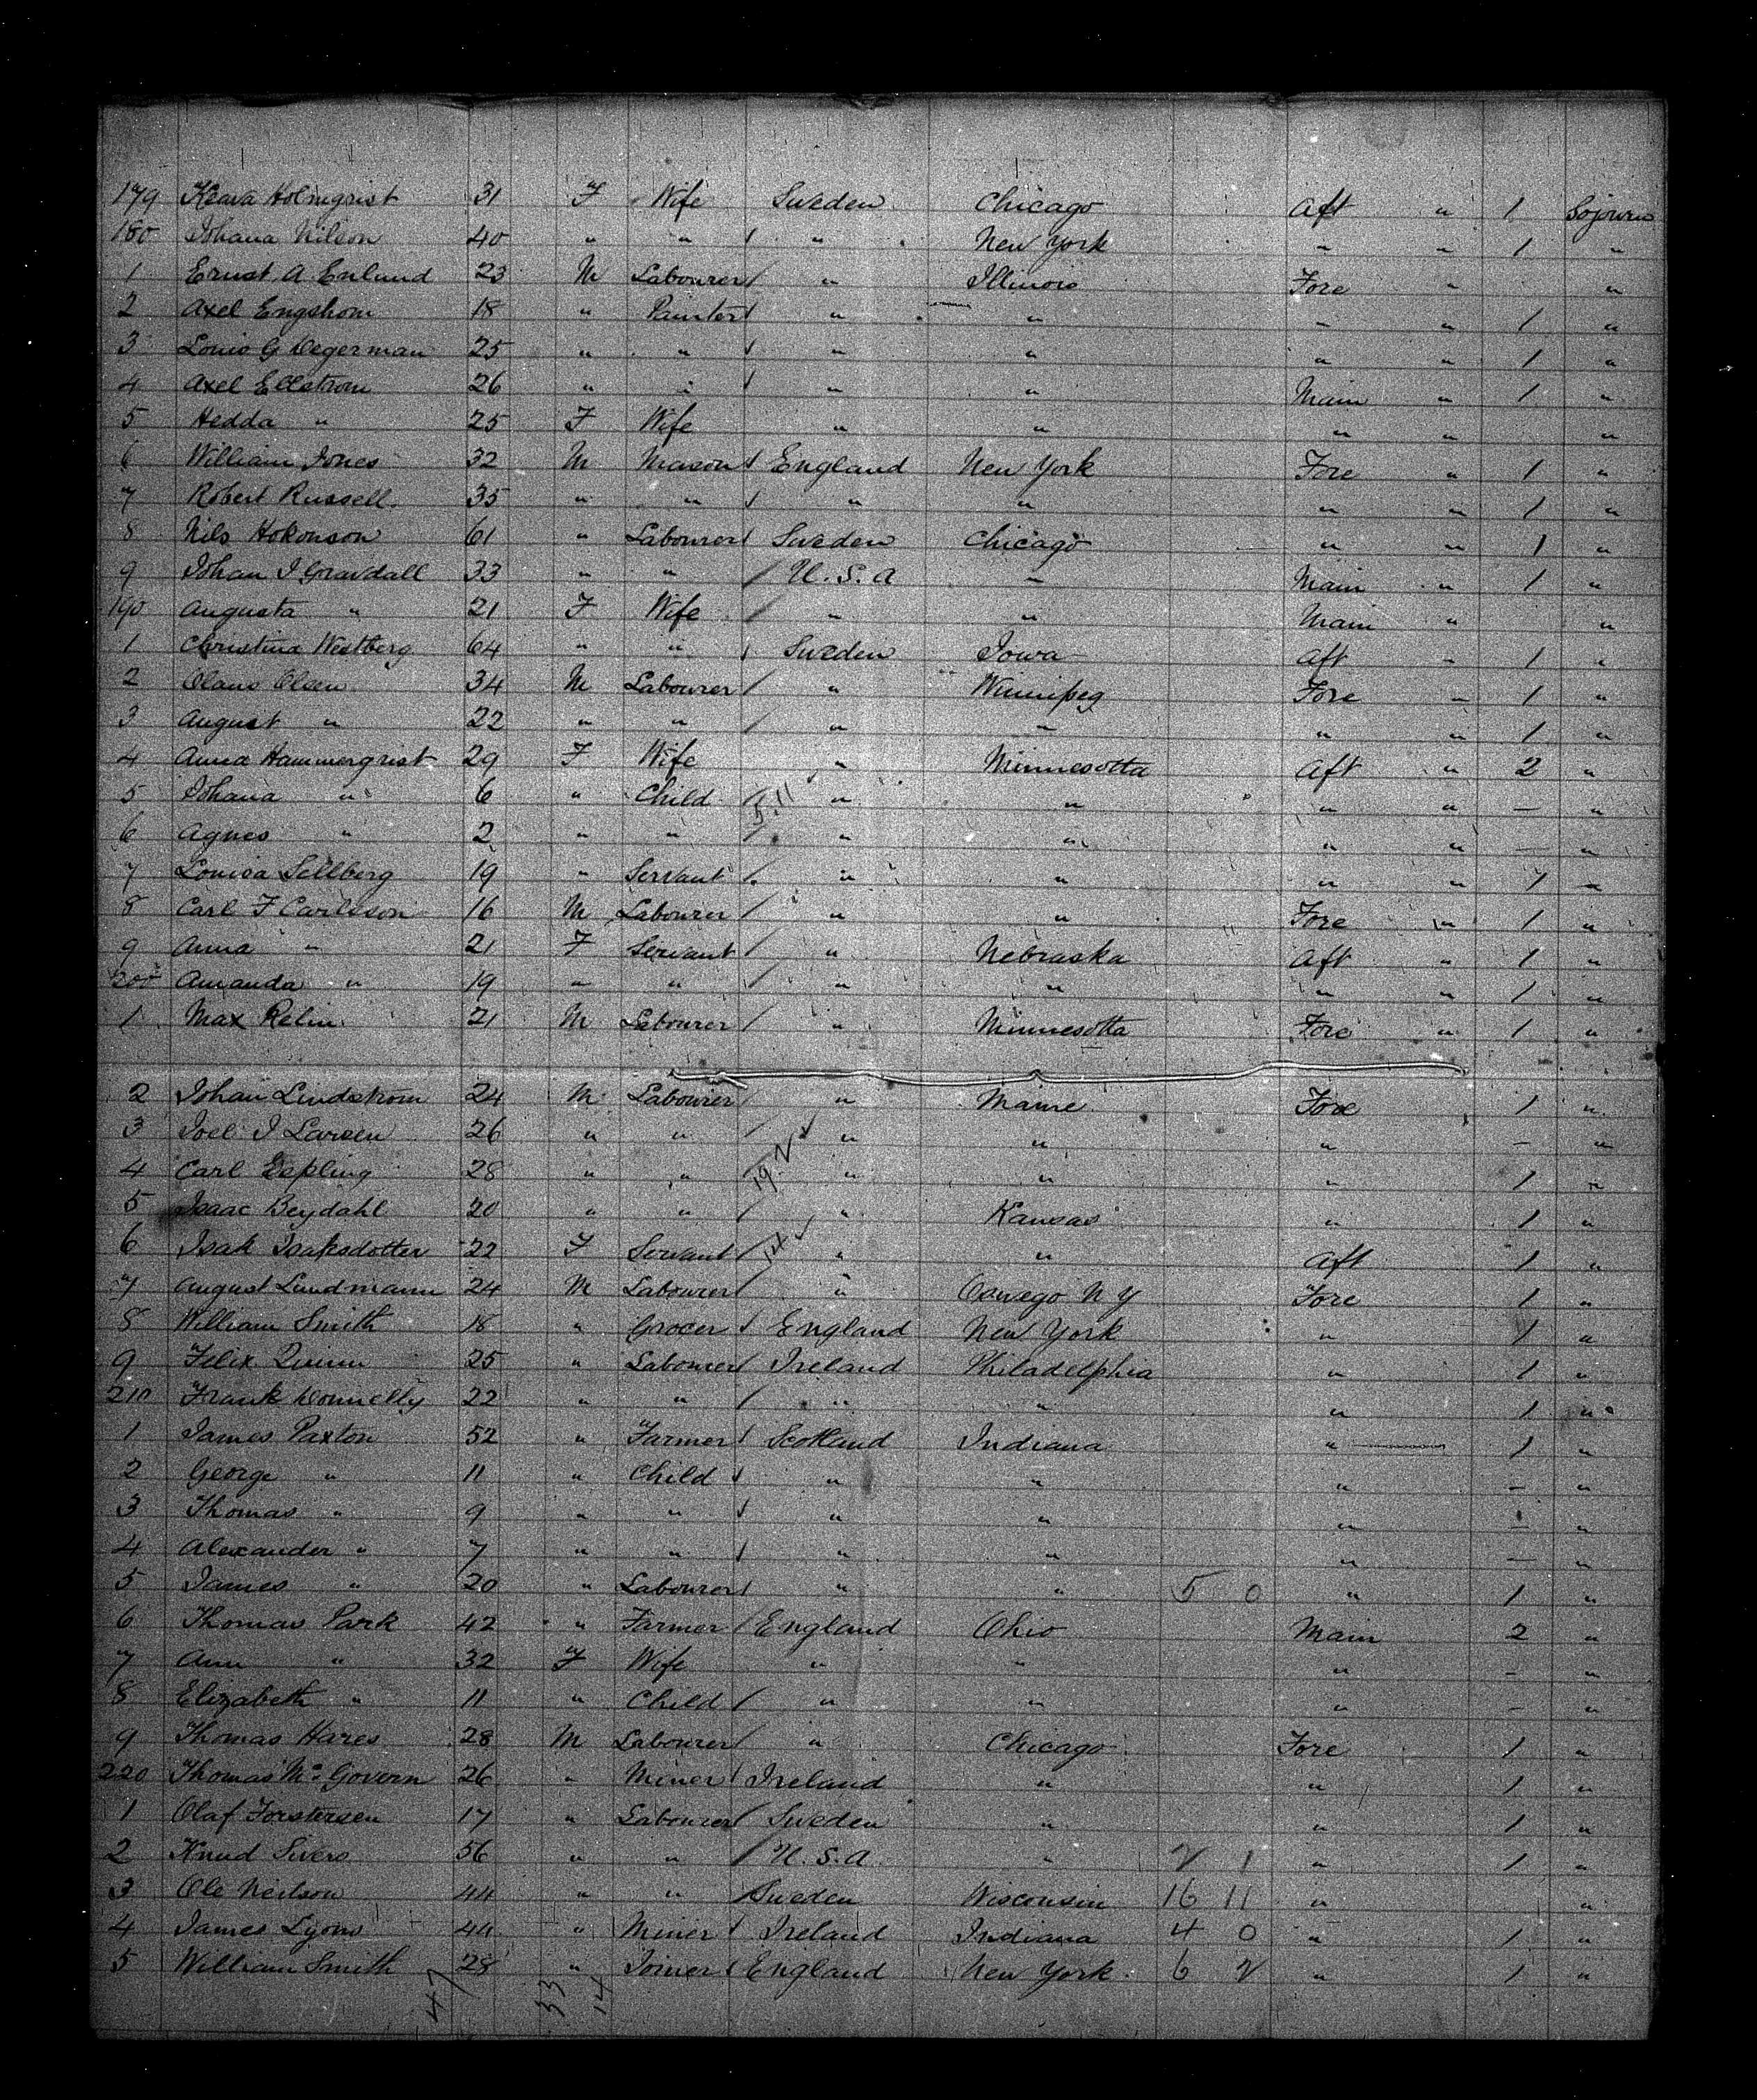 179 Klara Holmqrist 31 F Wife Sweden Chicago Aft " 1 Sojourn
180 Johana Nilson 40 " " / " New York " " 1 "
1 Ernst A Enlund 23 M Labourer / " Illinois Fore " "
2 Axel Engshom 18 " Painter / " " " " 1 "
3 Louis G Degerman 25 " " / " " " " 1 "
4 Axel Ellstrom 26 " " / " " Main " 1 "
5 Hedda " 25 F Wife " " " " "
6 William Jones 32 M Mason / England New York Fore " 1 "
7 Robert Russell 35 " " / " " " " 1 "
8 Nils Hokonson 61 " Labourer / Sweden Chicago " " 1 "
9 Johan J Gravdall 33 " " / U.S.A " Main " 1 "
190 Augusta " 21 F Wife / " " Main " "
1 Christina Westberg 64 " " / Sweden Iowa Aft " 1 "
2 Olaus Olsen 34 M Labourer / " Winnipeg Fore " 1 "
3 August " 22 " " / " " " " 1 "
4 Anna Hammerqrist 29 F Wife " Minnesotta Aft " 2 "
5 Johana " 6 " Child / 5.11 " " " " - "
6 Agnes " 2 " " / " " " " - "
7 Louisa Sellberg 19 " Servant / " " " " 1 "
8 Carl F Carlsson 16 M Labourer / " " Fore " 1 "
9 Anna " 21 F Servant / " Nebraska Aft " 1 "
200 Amanda " 19 " " / " " " " 1 "
1 Max Relin 21 M Labourer / " Minnesotta Fore " 1 "
2 Johan Lindstrom 24 M Labourer / " Maine Fore 1 "
3 Joel J Larsen 26 " " / " " " - "
4 Carl Espling 28 " " / 19.2 " " " 1 "
5 Isaac Beydahl 20 " " / " Kansas " 1 "
6 Isak Isaksdotter 22 F Servant / 14 " " Aft 1 "
7 August Lundmann 24 M Labourer / " Oswego N Y Fore 1 "
8 William Smith 18 " Grocer / England New York " 1 "
9 Felix Quinn 25 " Labourer / Ireland Philadelphia " 1 "
210 Frank Donnelly 22 " " / " " " 1 "
1 James Paxton 52 " Farmer / Scotland Indiana " 1 "
2 George " 11 " Child / " " " - "
3 Thomas " 9 " " / " " " - "
4 Alexander " 7 " " / " " " - "
5 James " 20 " Labourer / " " 5 0 " 1 "
6 Thomas Park 42 " Farmer / England Ohio Main 2 "
7 Ann " 32 F Wife " " " - "
8 Elizabeth " 11 " Child / " " " - "
9 Thomas Hares 28 M Labourer / " Chicago Fore 1 "
220 Thomas Mc Govern 26 " Miner / Ireland " " 1 "
1 Olaf Torstersen 17 " Labourer / Sweden " " 1 "
2 Knud Sivers 56 " " / U.S.A. " 2 1 " 1 "
3 Ole Neilson 44 " " / Sweden Wisconsin 16 11 " "
4 James Lyons 44 " Miner / Ireland Indiana 4 0 " 1 "
5 William Smith 28 " Joiner / England New York 6 2 " 1 "
47 33 14